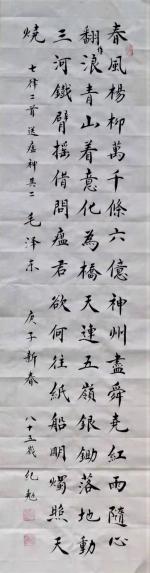 春風楊柳萬千條六億神州盡舜堯紅雨隨心
翻作浪青山着意化為橋天連五嶺銀鋤落地動
三河鐵臂搖借問瘟君欲何往紙船明燭照天
燒
七律二首送瘟神其二毛泽东
庚子新春
八十五歲